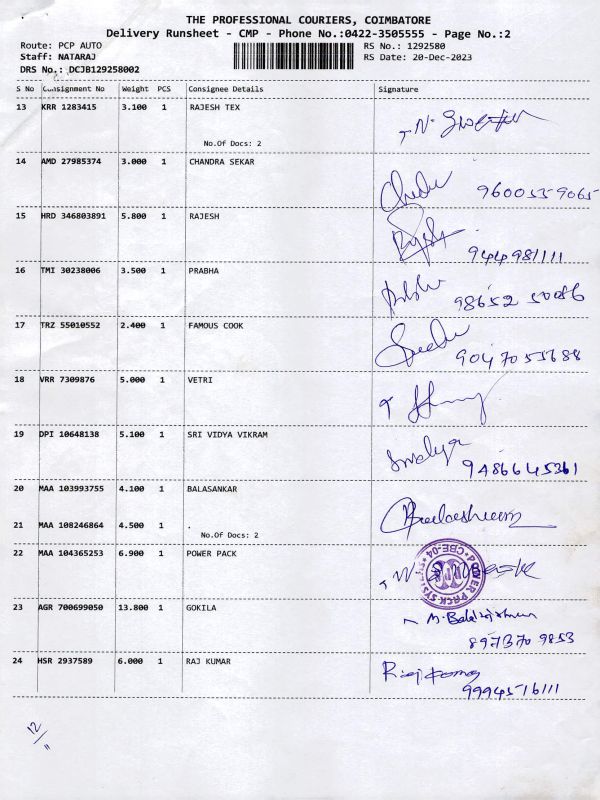 THE PROFESSIONAL COURIERS, COIMBATORE
Delivery Runsheet - CMP - Phone No.:0422-3505555 - Page No.:2
Route: PCP AUTO RS No.: 1292580
Staff: NATARAJ RS Date: 20-Dec-2023
DRS No.: DCJB129258002
S No Consignment No Weight PCS Consignee Details Signature
13 KRR 1283415 3.100 1 RAJESH TEX
No.Of Docs: 2
14 AMD 27985374 3.000 1 CHANDRA SEKAR
9600559065
15 HRD 346803891 5.800 1 RAJESH
944981111
16 TMI 30238006 3.500 1 PRABHA
98652 50086
17 TRZ 55010552 2.400 1 FAMOUS COOK
9047055688
18 VRR 7309876 5.000 1 VETRI
19 DPI 10648138 5.100 1 SRI VIDYA VIKRAM
9486645361
20 MAA 103993755 4.100 1 BALASANKAR
21 MAA 108246864 4.500 1 .
No.Of Docs: 2
22 MAA 104365253 6.900 1 POWER PACK
CBE-04
23 AGR 700699050 13.800 1 GOKILA
897370 9853
24 HSR 2937589 6.000 1 RAJ KUMAR
Rajkumar
9994516111
12